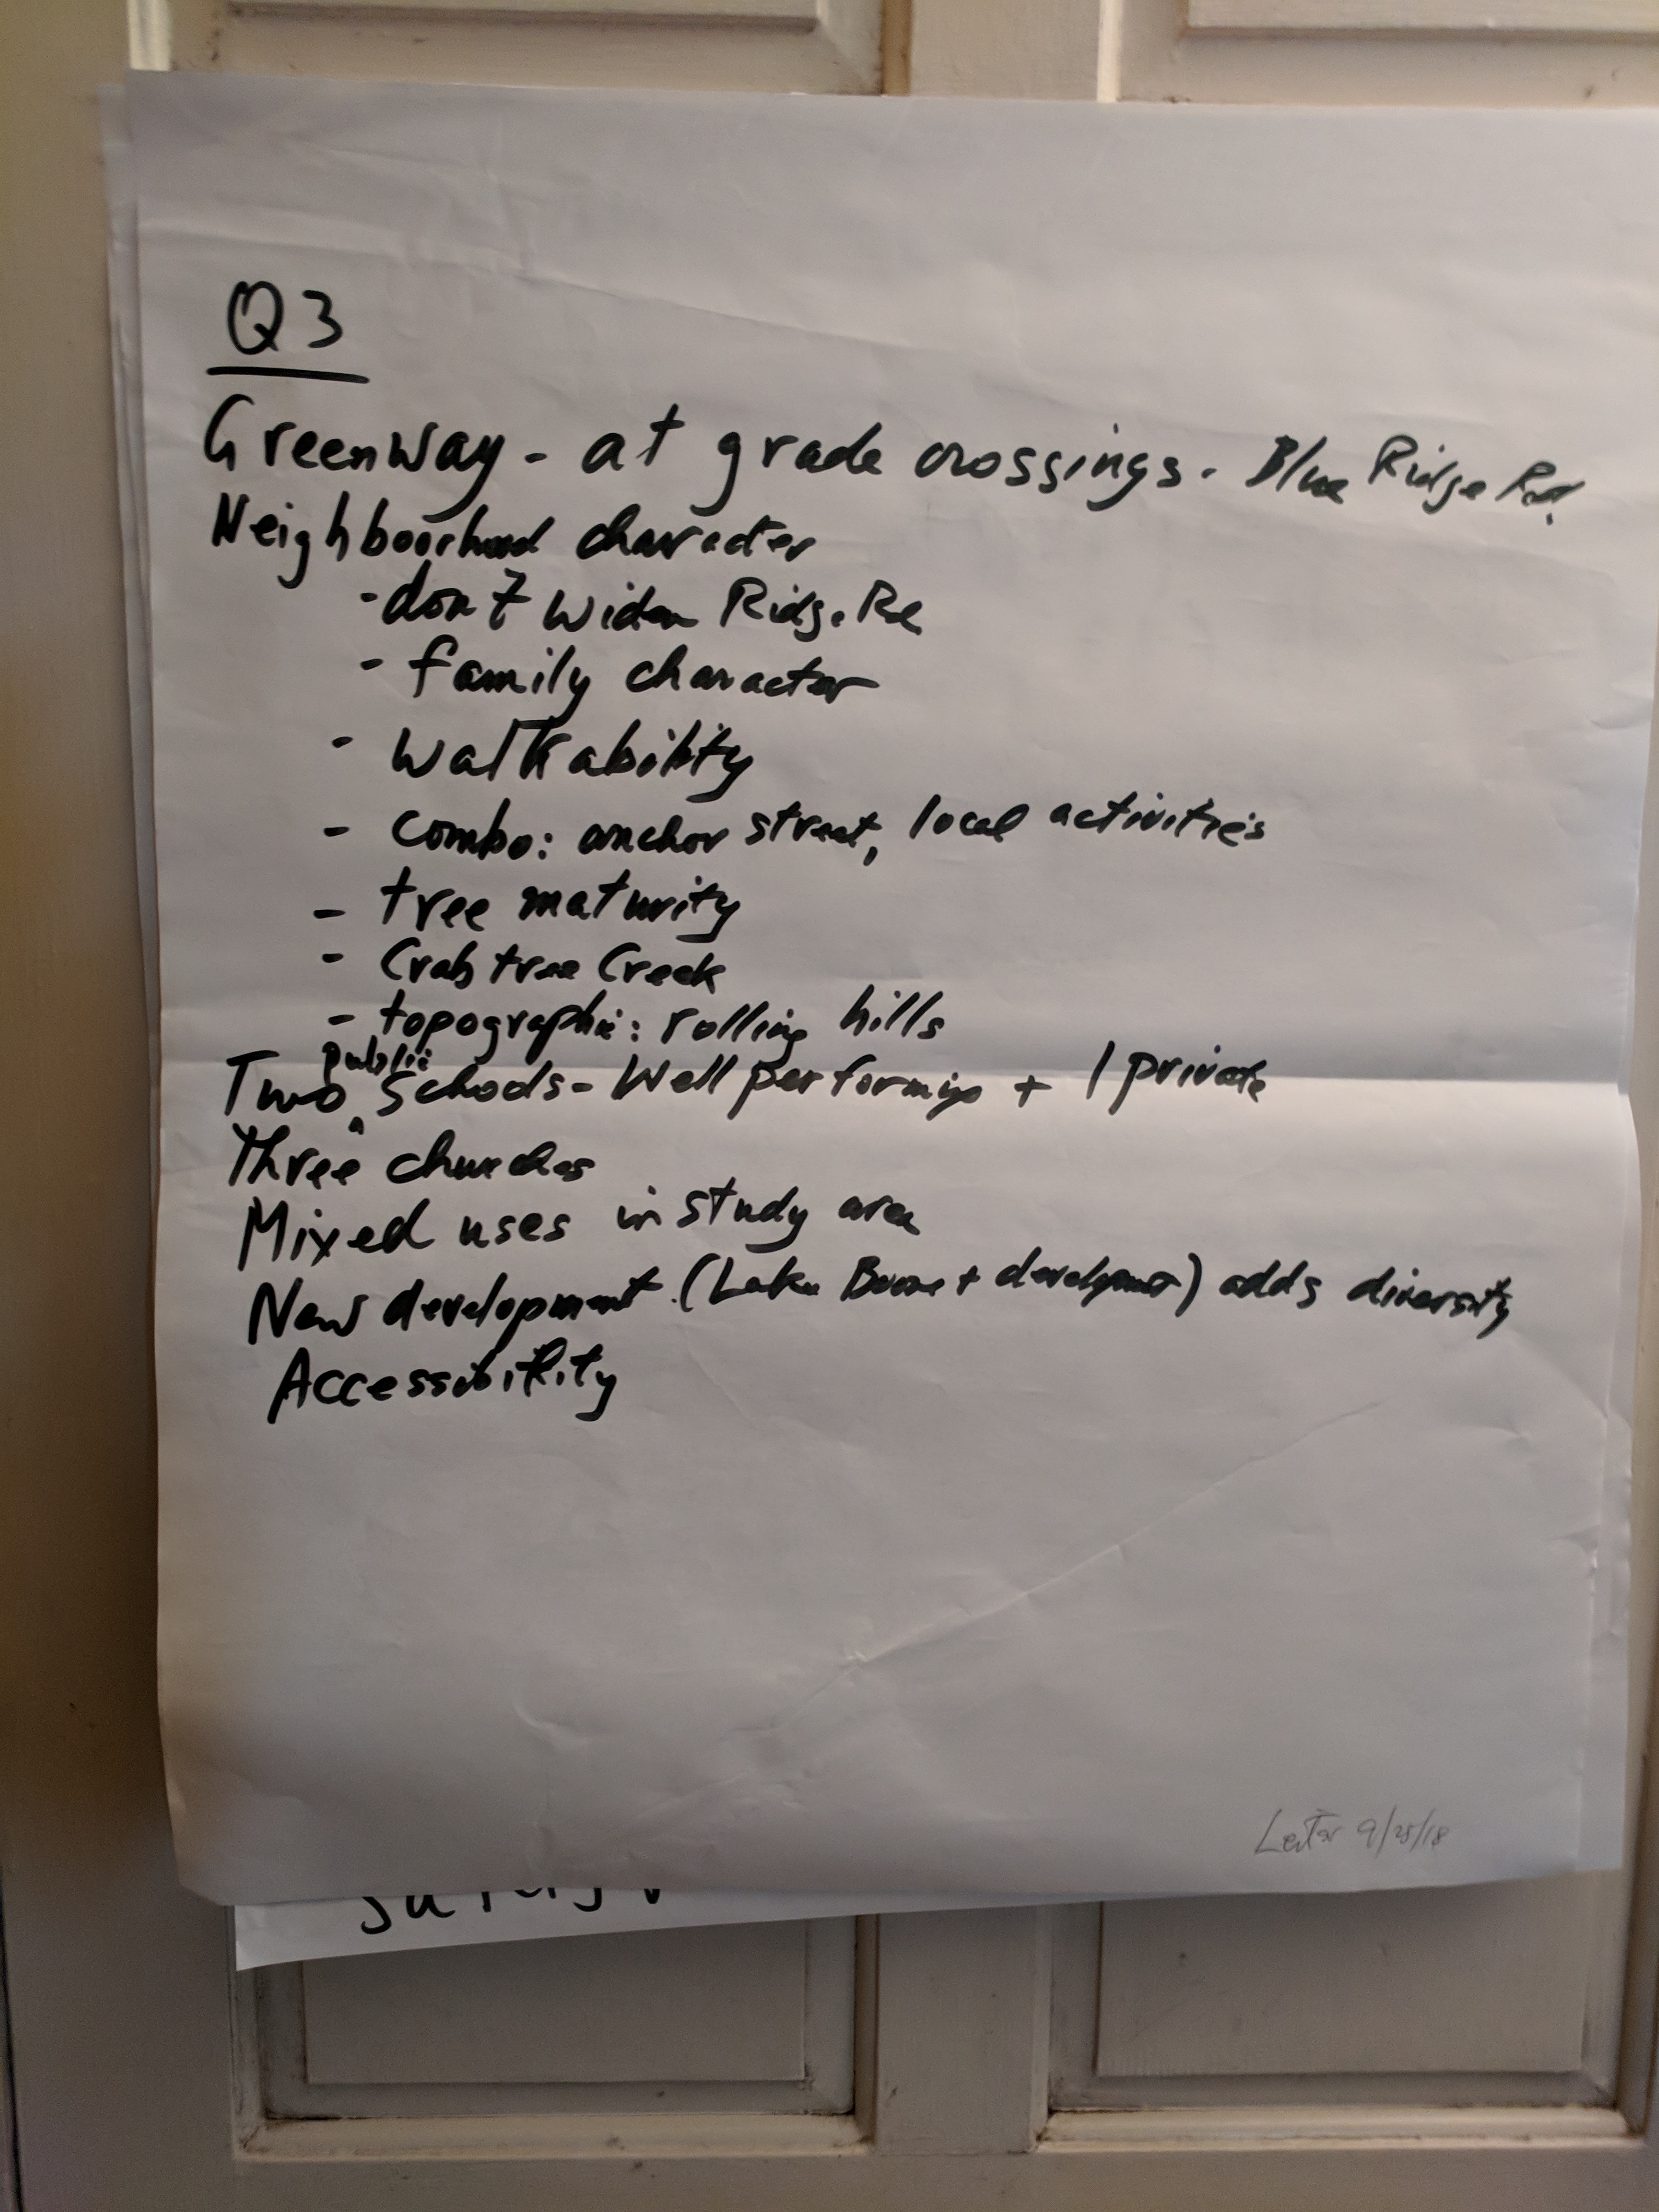 Q3
Greenway - at grade crossings - Blue Ridge Rd.
Neighboorhood character
- don't widen Ridge Rd
- family character
- walkability
- combo: anchor street, local activities
- tree maturity
- Crabtree Creek
- topographic: rolling hills
Two public schools - Well performing + 1 private
Three churches
Mixed uses in study area
New development (Lake Boone + development) adds diversity
Accessibility
9/25/18